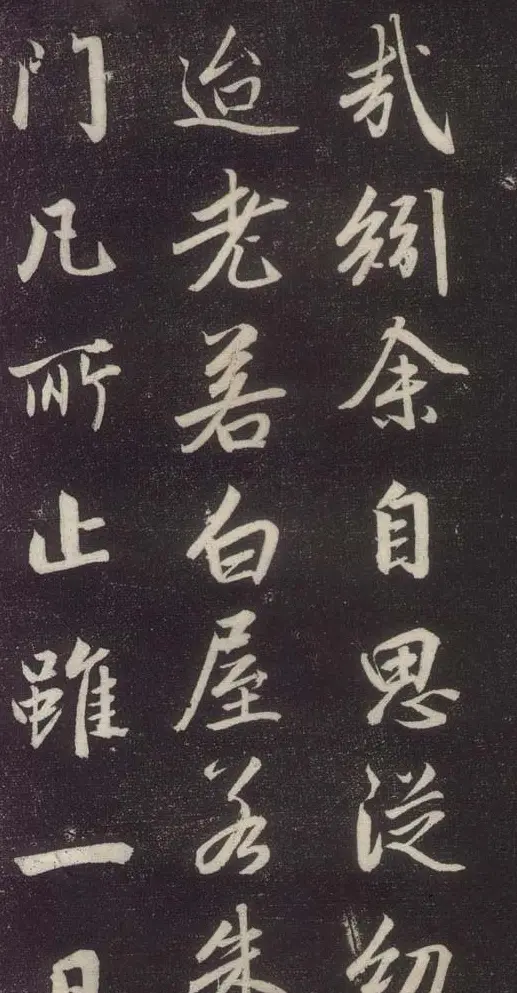 哉矧余自思從幼
迨老若白屋若朱
門凡所止雖一日